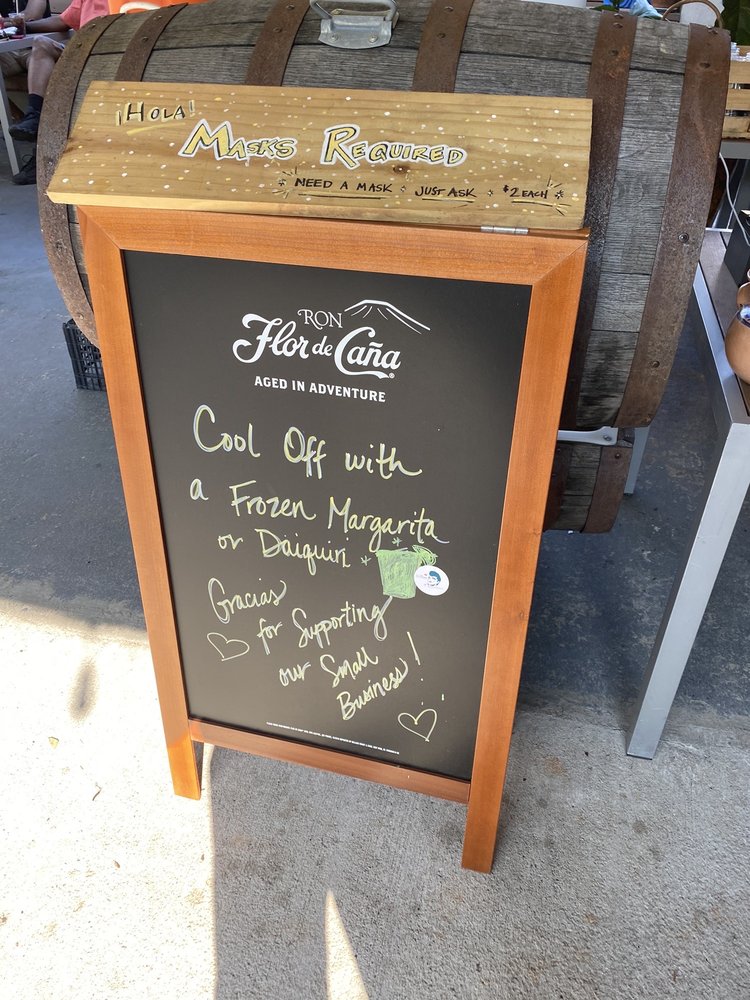 ¡HOLA!
MASKS REQUIRED
NEED A MASK · JUST ASK · $2 EACH
RON
Flor de Caña®
AGED IN ADVENTURE
Cool Off with
a Frozen Margarita
or Daiquiri
Gracias
for Supporting
our Small
Business!